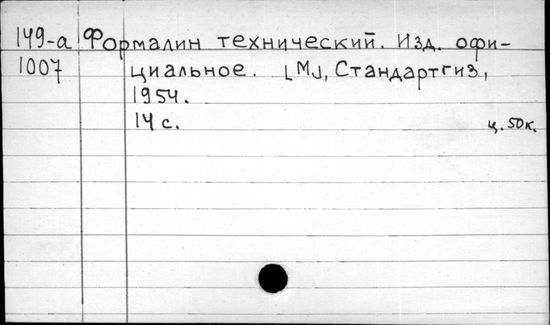 149-а Формалин технический. Изд. офи-
1007 циальное. [М], Стандартгиз,
1954.
14 с. ц. 50к.